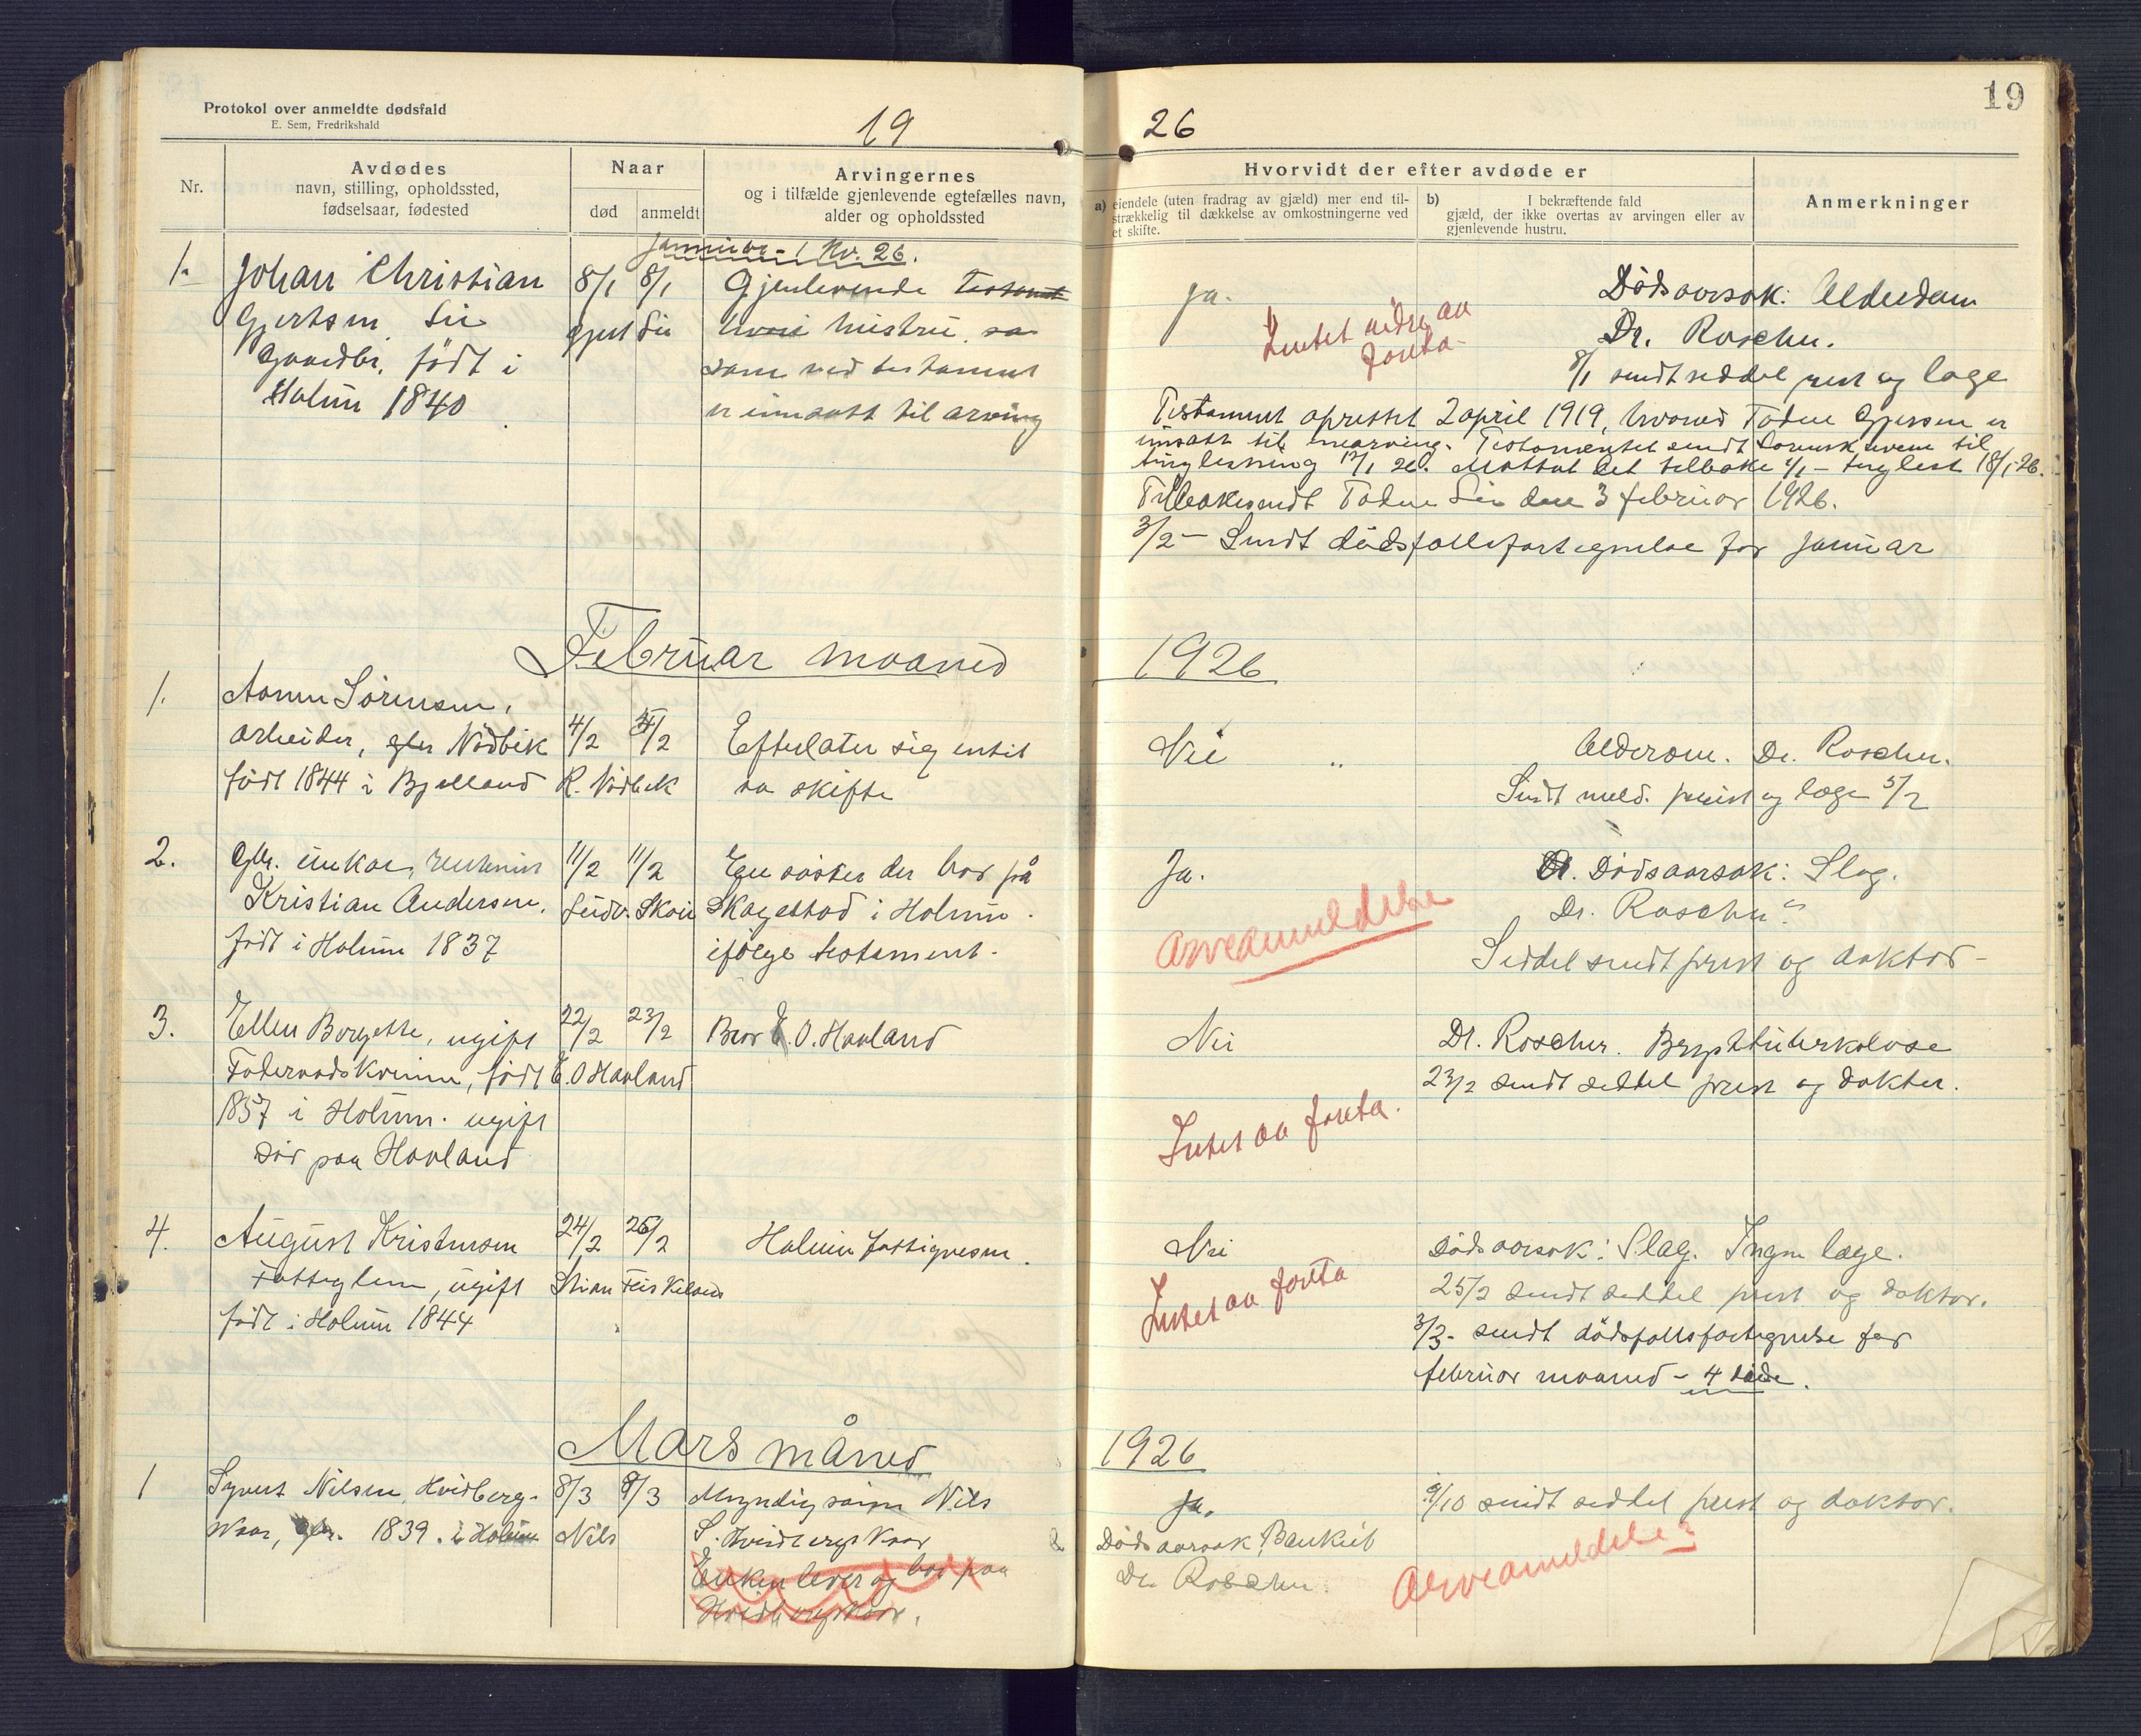 Protokol over anmeldte dødsfald
E. Sem, Fredrikshald
19
26
19
Nr.
Avdødes
navn, stilling, opholdssted,
fødselsaar, fødested
Naar
død
anmeldt
Arvingernes
og i tilfælde gjenlevende egtefælles navn,
alder og opholdssted
Hvorvidt der efter avdøde er
a) eiendele (uten fradrag av gjæld) mer end til-
strækkelig til dækkelse av omkostningerne ved
et skifte.
b) I bekræftende fald
gjæld, der ikke overtas av arvingen eller av
gjenlevende hustru.
Anmerkninger
Januar - Nr. 26.
1. Johan Christian
Gjertsen Lie
Gaardbr. født i
Holum 1840
8/1 8/1
Gjert Lie
Gjenlevende
hustru, sa
som ved testament
er innsatt til arving
Ja.
Intet videre aa
foreta
Dødsaarsak: Alderdom
Dr. Roscher.
8/1 sendt seddel prest og læge
Testament oprettet 2 april 1919, hvorved Todne Gjersen er
innsatt til enearving. Testamentet sendt Sorenskriveren til
tinglesning 12/1 26. Mottat det tilbake - tinglest 18/1-26.
Tilbakesendt Todne Lie den 3 februar 1926.
3/2 - Sendt dødsfallsfortegnelse for januar
Februar maaned
1926
1. Aanen Sørensen,
arbeider, Nødbek
født 1844 i Bjelland
4/2 5/2
R. Nødbek
Efterlater sig intet
aa skifte
Nei
Alderdom. Dr. Roscher.
Sendt meld. prest og læge 5/2
2. Gbr. enkem. rentenist
Kristian Andersen,
født i Holum 1837
11/2 11/2
Ludv. Skoie
En søster der bor på
Skagestad i Holum.
ifølge testament.
Ja.
Arveanmeldelse
Dødsaarsak: Slag.
Dr. Roscher.
Seddel sendt prest og doktor-
3. Ellen Borgette, ugift
Foderraadskvinne, født
1857 i Holum. ugift
dør paa Havland
22/2 23/2
E.O Havland
Bror E. O. Havland
Nei
Intet aa foreta.
Dr. Roscher. Brysttuberkulose
23/2 sendt seddel prest og doktor.
4. August Kristensen
Fatteglem, ugift
født i Holum 1844
24/2 25/2
Stian
Holum fattigvesen.
Nei
Intet aa foreta
Dødsaarsak: Slag. Ingen læge.
25/2 sendt seddel prest og doktor.
3/3- sendt dødsfallsfortegnelse for
februar maaned - 4 døde.
Mars måned
1926
1 Syvert Nilsen, Hvidberg-
Vaar, gbr. 1839. i Holum
8/3 9/3
Nils
Myndig sønn Nils
S. Hvidbergs Vaar
Enken lever og bor paa
Hvidbergskaar.
Ja.
Dødsaarsak
Dr. Roscher
9/10 sendt seddel prest og doktor.
Arveanmeldelse